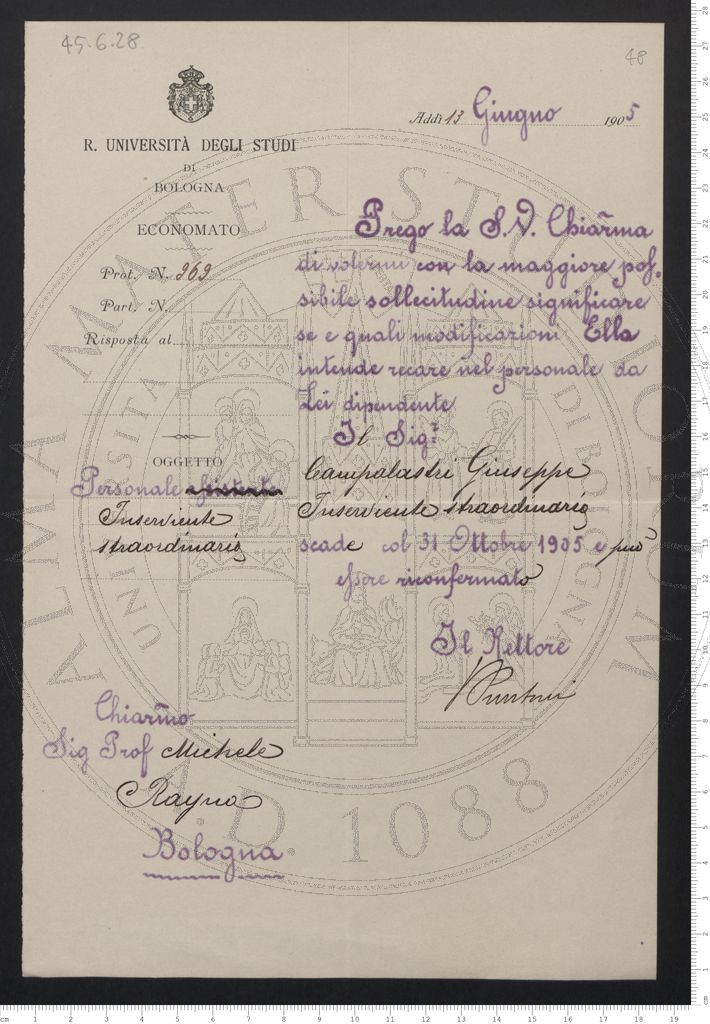 45.6.28
48
Addì 13 Giugno 1905
R. UNIVERSITÀ DEGLI STUDI
DI
BOLOGNA
ECONOMATO
Prot. N. 969
Part. N.
Risposta al
OGGETTO
Personale
Inserviente
straordinario
Prego la S. V. Chiar̃ma
di volermi con la maggiore pos-
sibile sollecitudine significare
se e quali modificazioni Ella
intende recare nel personale da
Lei dipendente
Il Sig.r
Campalastri Giuseppe
Inserviente straordinario
scade col 31 Ottobre 1905 e può
essere riconfermato
Il Rettore
VPuntoni
Chiar̃mo
Sig Prof Michele
Rayna
Bologna
ALMA MATER STUDIORUM
UNIVERSITÀ DI BOLOGNA
A.D. 1088